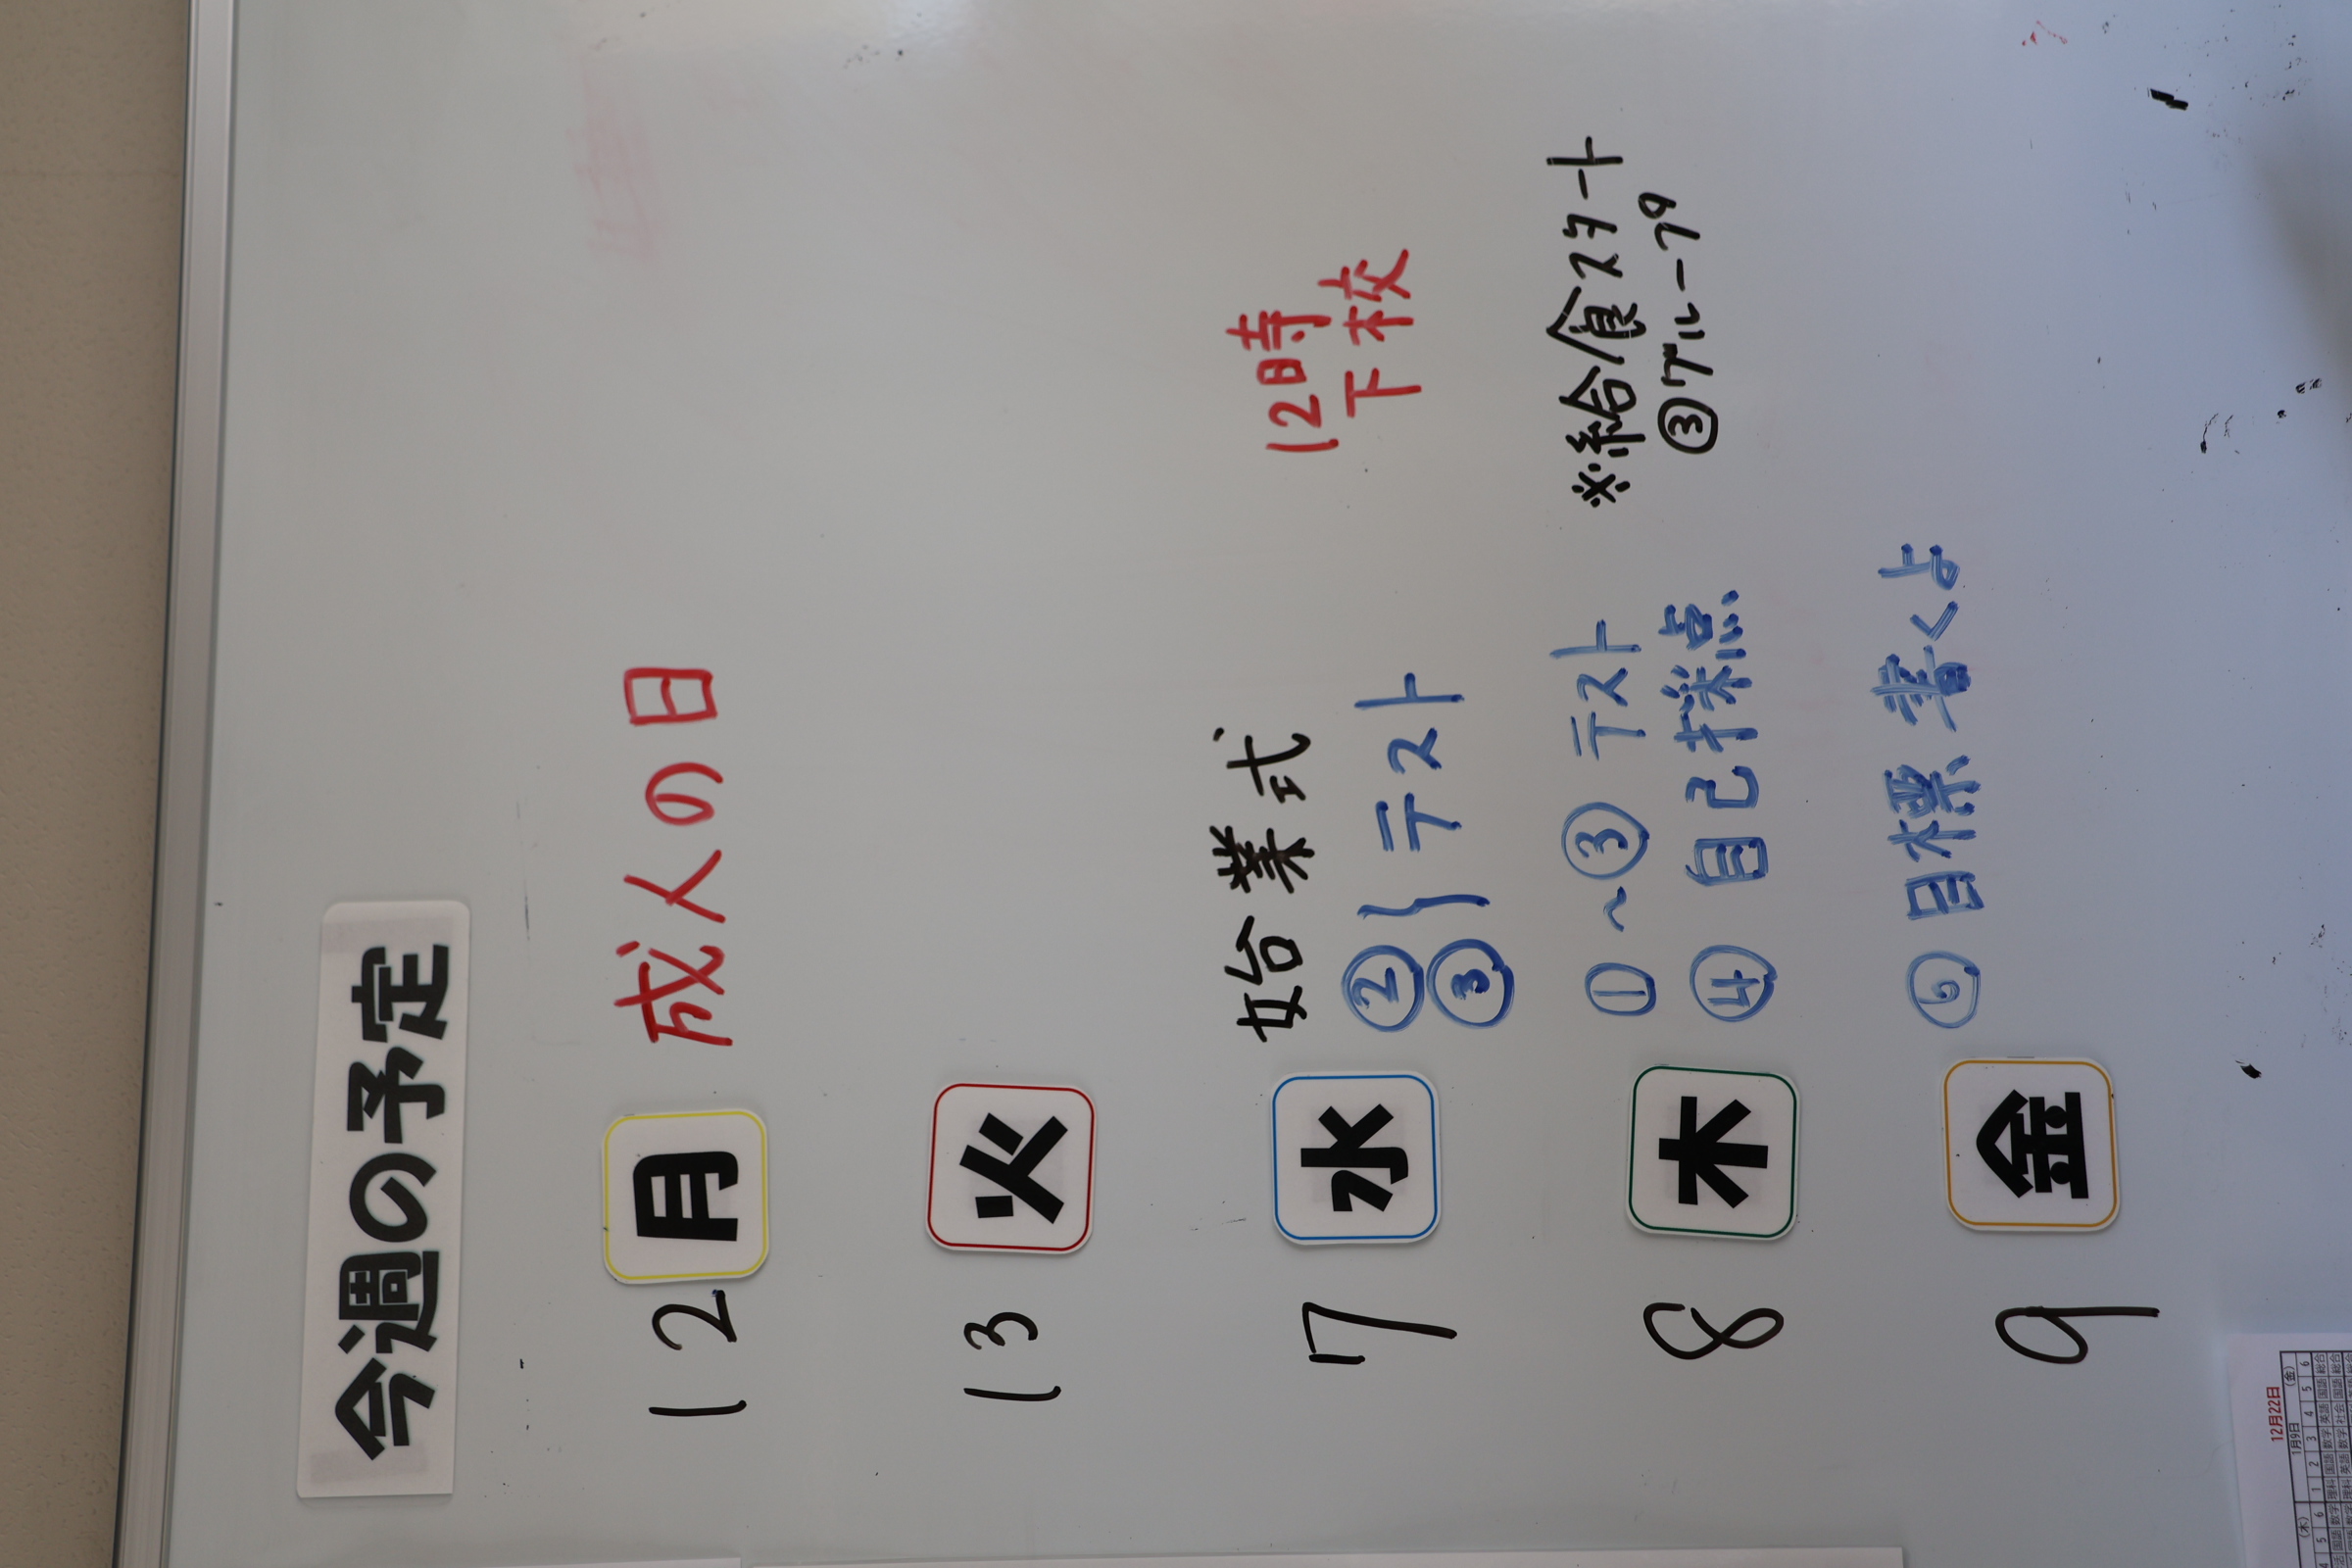 今週の予定
12 月 成人の日
13 火
7 水 始業式 12時
下校
② } テスト
③
8 木 ①~③ テスト ※給食スタート
④ 自己採点 ③グループ
9 金 ⑥ 目標 書くよ
12月22日
1月9日 (金)
(木)
1 2 3 4 5 6